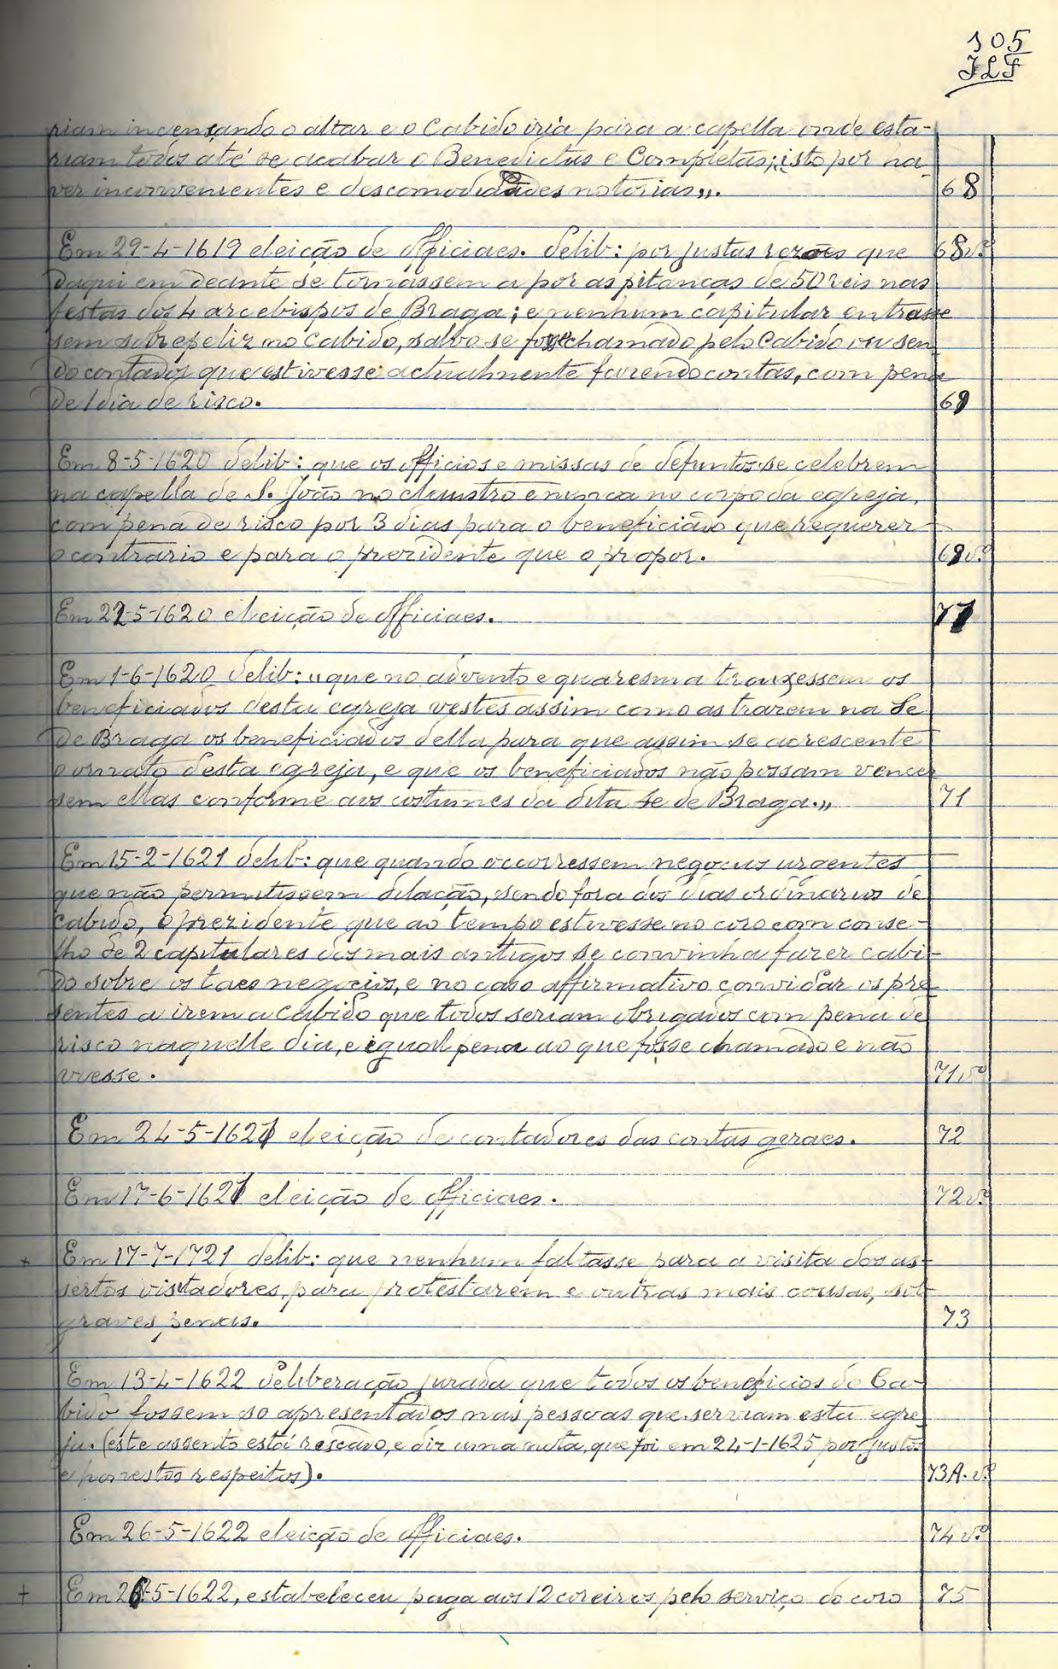 105
JLF
riam incensando o altar e o Cabido iria para a capella onde esta-
riam todos até se acabar o Benedictus e Completas; isto por ha-
ver inconvenientes e descomodidades notorias„.
68
Em 29-4-1619 eleição de officiaes. Delib: por justas rezões que
68 vº
daqui em deante se tomassem a por as pitanças de 50 reis nas
festas dos 4 arcebispos de Braga; e nenhum capitular entrasse
sem sobrepeliz no Cabido, salvo se fosse chamado pelo Cabido ou sen-
do contados que estivesse actualmente fazendo contas, com pena
de 1 dia de risco.
69
Em 8-5-1620 delib: que os officios e missas de defuntos se celebrem
na capella de S. João no claustro e nunca no corpo da egreja,
com pena de risco por 3 dias para o beneficiado que requerer
o contrario e para o prezidente que o propor.
69 vº
Em 22-5-1620 eleição de officiaes.
71
Em 1-6-1620 delib: „que no advento e quaresma trouxessem os
beneficiados desta egreja vestes assim como as trazem na Se
de Braga os beneficiados della para que assim se acrescente
o ornato desta egreja, e que os beneficiados não possam vencer
sem ellas conforme aos costumes da dita Se de Braga.„
71
Em 15-2-1621 delib: que quando occorressem negocios urgentes
que não permitissem dilação, sendo fora dos dias ordinarios de
Cabido, o prezidente que ao tempo estivesse no coro com conse-
lho de 2 capitulares dos mais antigos se convinha fazer cabi-
do sobre os taes negocios, e no caso affirmativo convidar os pre-
sentes a irem a Cabido que todos seriam obrigados com pena de
risco naquelle dia, e igual pena ao que fosse chamado e não
viesse.
71 vº
Em 24-5-1621 eleição de contadores das contas geraes.
72
Em 17-6-1621 eleição de officiaes.
72 vº
+ Em 17-7-1721 delib: que nenhum faltasse para a visita dos as-
sertos visitadores, para protestarem e outras mais cousas, sob
graves penas.
73
Em 13-4-1622 Deliberação jurada que todos os beneficios do Ca-
bido fossem so apresentados nas pessoas que serviam esta egre-
ja. (este assento está rescado, e diz uma nota, que foi em 24-1-1625 por justos
e honestos respeitos).
73A. vº
Em 26-5-1622 eleição de officiaes.
74 vº
+ Em 26-5-1622, estabeleceu paga aos 12 coreiros pelo serviço do coro
75